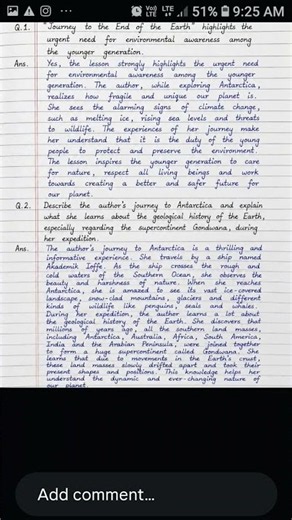 Vo) LTE LTE 51% 9:25 AM
Q.1. "Journey to the End of the Earth" highlights the
urgent need for environmental awareness among
the younger generation.
Ans. Yes, the lesson strongly highlights the urgent need
for environmental awareness among the younger
generation. The author, while exploring Antarctica,
realizes how fragile and unique our planet is.
She sees the alarming signs of climate change,
such as melting ice, rising sea levels and threats
to wildlife. The experiences of her journey make
her understand that it is the duty of the young
people to protect and preserve the environment.
The lesson inspires the younger generation to care
for nature, respect all living beings and work
towards creating a better and safer future for
our planet.
Q.2. Describe the author's journey to Antarctica and explain
what she learns about the geological history of the Earth,
especially regarding the supercontinent Gondwana, during
her expedition.
Ans. The author's journey to Antarctica is a thrilling and
informative experience. She travels by a ship named
Akademik Ioffe. As the ship crosses the rough and
cold waters of the Southern Ocean, she observes the
beauty and harshness of nature. When she reaches
Antarctica, she is amazed to see its vast ice-covered
landscape, snow-clad mountains, glaciers and different
kinds of wildlife like penguins, seals and whales.
During her expedition, the author learns a lot about
the geological history of the Earth. She discovers that
millions of years ago, all the southern land masses,
including Antarctica, Australia, Africa, South America,
India and the Arabian Peninsula, were joined together
to form a huge supercontinent called Gondwana. She
learns that due to movements in the Earth's crust,
these land masses slowly drifted apart and took their
present shapes and positions. This knowledge helps her
understand the dynamic and ever-changing nature of
our planet.
Add comment...